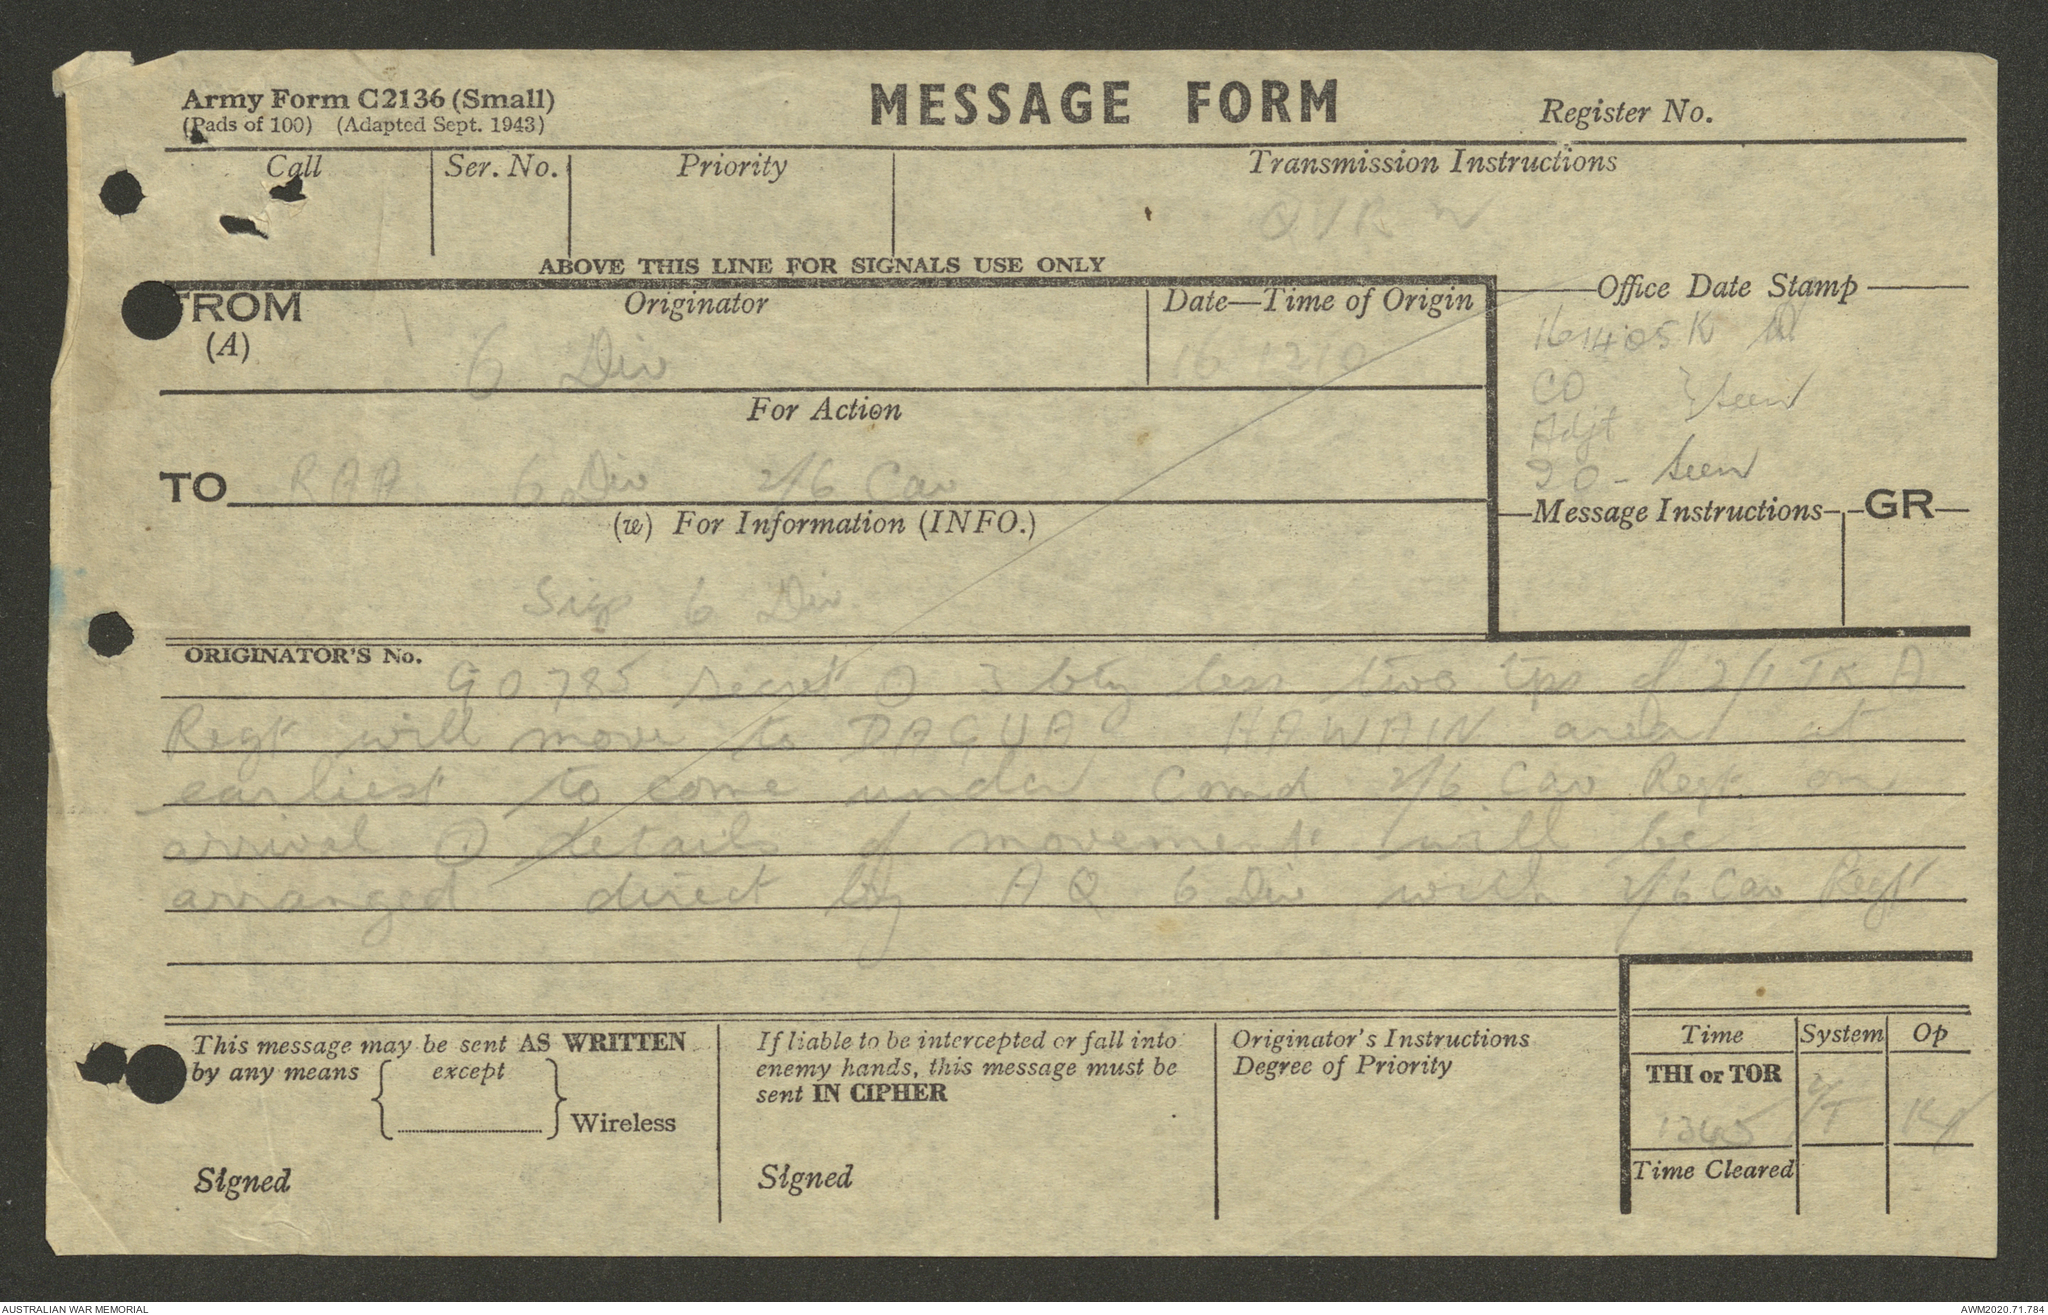 Army Form C2136 (Small)
(Pads of 100) (Adapted Sept. 1943)
MESSAGE FORM
Register No.
Call
Ser. No.
Priority
Transmission Instructions
QVR
ABOVE THIS LINE FOR SIGNALS USE ONLY
FROM
(A)
Originator
6 Div
Date—Time of Origin
16 1210
Office Date Stamp
161405K
CO
Adjt } seen
IO - seen
For Action
TO RAA 6 Div 2/6 Cav
(w) For Information (INFO.)
Sigs 6 Div
Message Instructions
GR
ORIGINATOR'S No.
GO785 secret ① 3 bty less two tps of 2/1 TK A
Regt will move to DAGUA HAWAIN area at
earliest to come under Comd 2/6 Cav Regt on
arrival ① details of movement will be
arranged direct by AQ 6 Div with 2/6 Cav Regt
This message may be sent AS WRITTEN
by any means { except } Wireless
Signed
If liable to be intercepted or fall into
enemy hands, this message must be
sent IN CIPHER
Signed
Originator's Instructions
Degree of Priority
Time System Op
THI or TOR
1345
Time Cleared
AUSTRALIAN WAR MEMORIAL
AWM2020.71.784